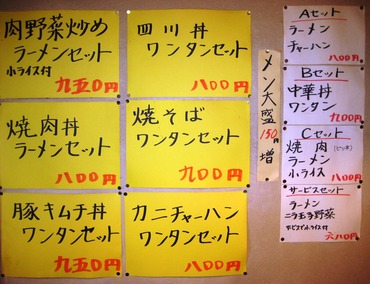 肉野菜炒め
ラーメンセット
小ライス付
九五〇円
四川丼
ワンタンセット
八〇〇円
焼肉丼
ラーメンセット
九〇〇円
焼そば
ワンタンセット
九〇〇円
豚キムチ丼
ワンタンセット
九五〇円
カニチャーハン
ワンタンセット
八〇〇円
メン大盛150円増
Aセット
ラーメン
チャーハン
八〇〇円
Bセット
中華丼
ワンタン
八〇〇円
Cセット
焼肉
ラーメン
小ライス
八〇〇円
サービスセット
ラーメン
ニラ玉子野菜
サービスで小ライス付
六八〇円